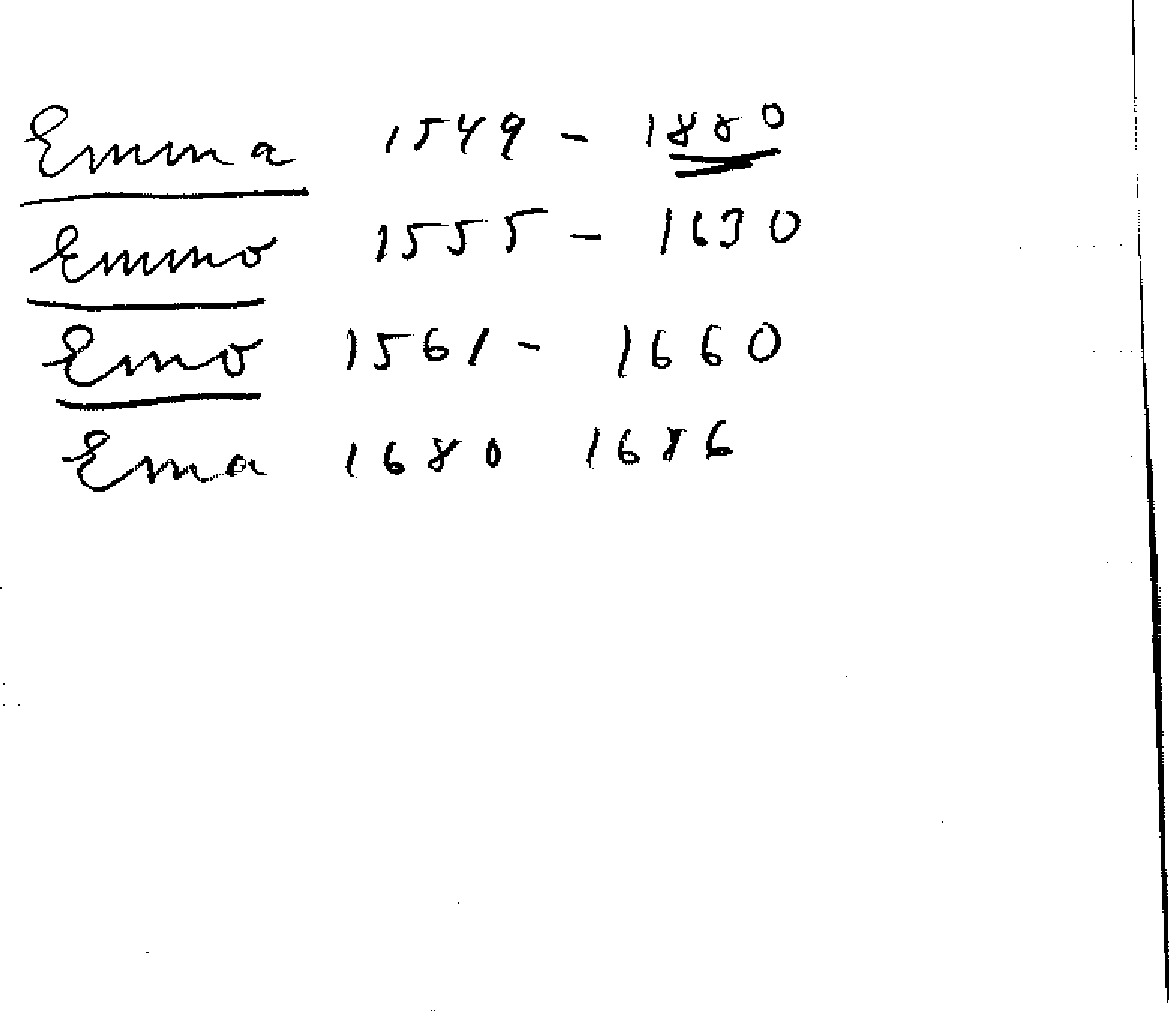 Emma 1549 - 1880
Emmo 1555 - 1630
Emo 1561 - 1660
Ema 1680 1686